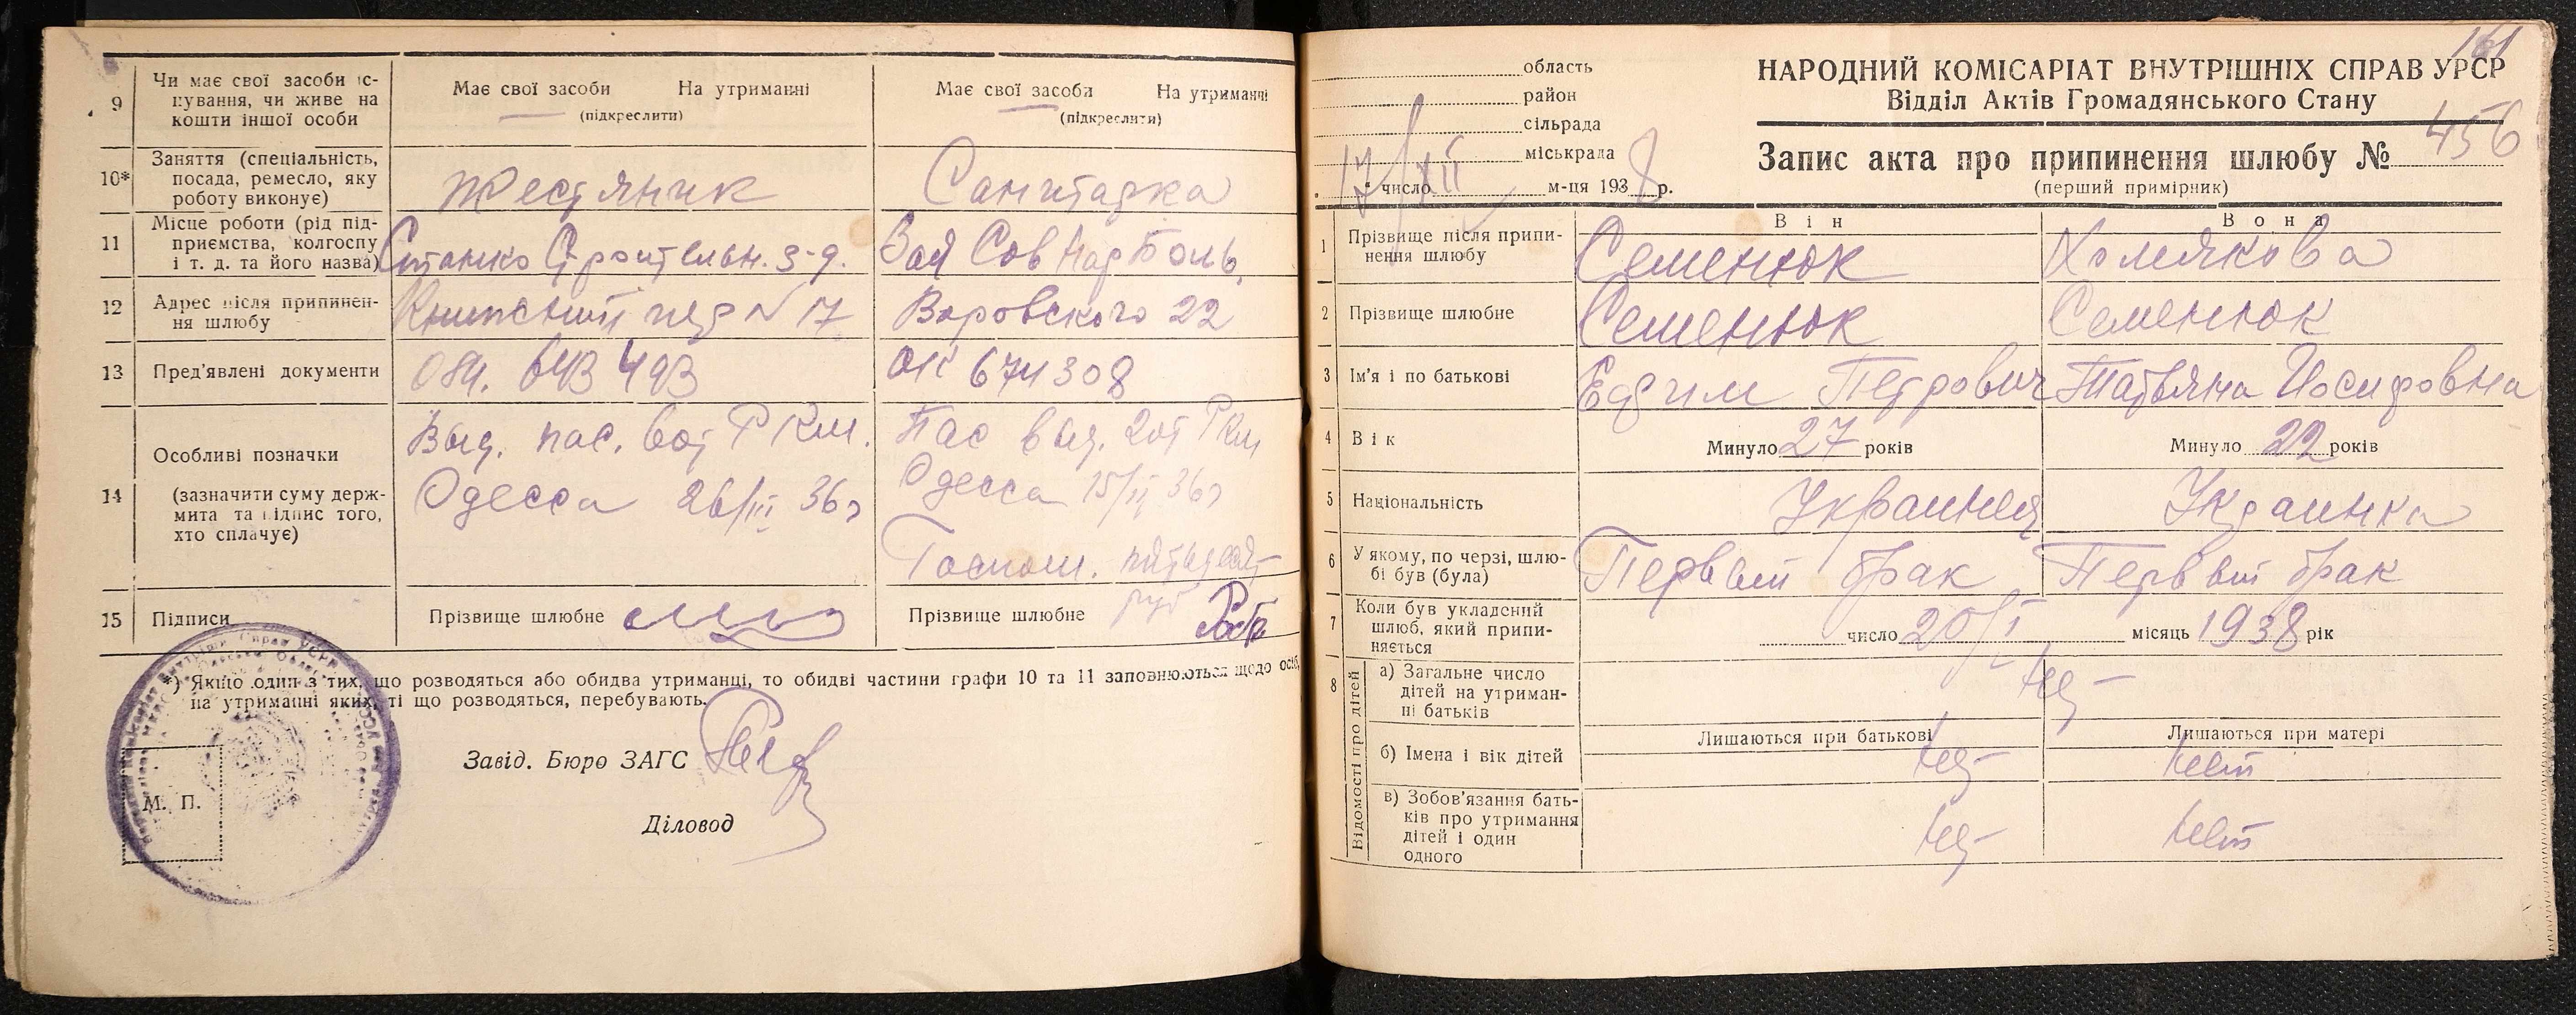 9 Чи має свої засоби іс-
нування, чи живе на
кошти іншої особи
Має свої засоби На утриманні
(підкреслити)
Має свої засоби На утриманні
(підкреслити)
10* Заняття (спеціальність,
посада, ремесло, яку
роботу виконує)
Жестяник
Санитарка
11 Місце роботи (рід під-
приємства, колгоспу
і т. д. та його назва)
Станко Строительн. з-д.
Сов Нар Боль.
12 Адрес після припинен-
ня шлюбу
пер N 17
Воровского 22
13 Пред'явлені документи
643493
ОК 671308
14 Особливі позначки
(зазначити суму держ-
мита та підпис того,
хто сплачує)
Выд. пас. 6от РКМ.
Одесса 26/III 36г
Пас выд. 2от РКМ
Одесса 15/II 36г
Госпош. пятьдесят
руб
15 Підписи
Прізвище шлюбне
Прізвище шлюбне
*) Якщо один з тих, що розводяться або обидва утриманці, то обидві частини графи 10 та 11 заповнюються щодо осіб,
на утриманні яких, ті що розводяться, перебувають.
Завід. Бюро ЗАГС
М. П.
Діловод
161
область
район
сільрада
міськрада
17/XII число м-ця 1938 р.
НАРОДНИЙ КОМІСАРІАТ ВНУТРІШНІХ СПРАВ УРСР
Відділ Актів Громадянського Стану
Запис акта про припинення шлюбу № 456
(перший примірник)
Він
Вона
1 Прізвище після припи-
нення шлюбу
Семенюк
Хомякова
2 Прізвище шлюбне
Семенюк
Семенюк
3 Ім'я і по батькові
Ефим Петрович
Татьяна Иосифовна
4 Вік
Минуло 27 років
Минуло 22 років
5 Національність
Украинец
Украинка
6 У якому, по черзі, шлю-
бі був (була)
Первый брак
Первый брак
7 Коли був укладений
шлюб, який припи-
няється
число 20/I місяць 1938 рік
8 Відомості про дітей
а) Загальне число
дітей на утриман-
ні батьків
нет
б) Імена і вік дітей
Лишаються при батькові
нет
Лишаються при матері
нет
в) Зобов'язання бать-
ків про утримання
дітей і один
одного
нет
нет